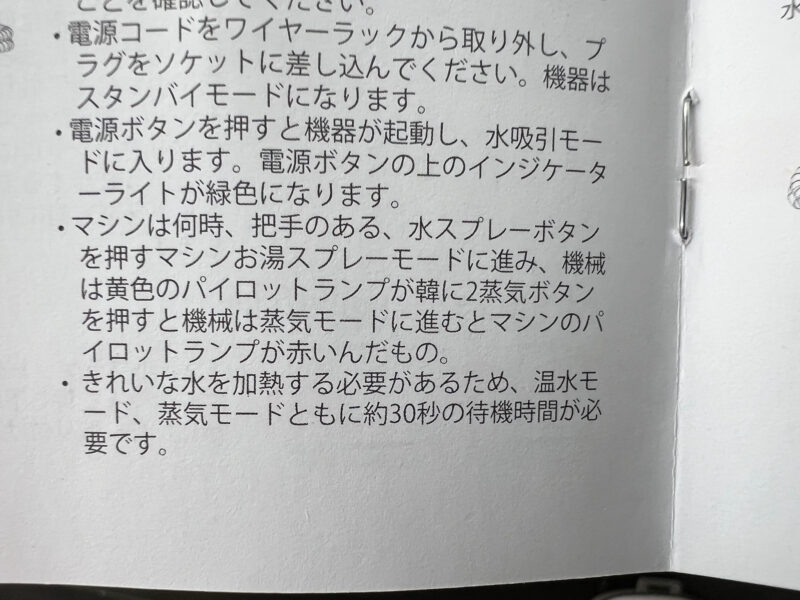 ことを確認してください。
・電源コードをワイヤーラックから取り外し、プ
ラグをソケットに差し込んでください。機器は
スタンバイモードになります。
・電源ボタンを押すと機器が起動し、水吸引モー
ドに入ります。電源ボタンの上のインジケータ
ーライトが緑色になります。
・マシンは何時、把手のある、水スプレーボタン
を押すマシンお湯スプレーモードに進み、機械
は黄色のパイロットランプが韓に2蒸気ボタン
を押すと機械は蒸気モードに進むとマシンのパ
イロットランプが赤いんだもの。
・きれいな水を加熱する必要があるため、温水モ
ード、蒸気モードともに約30秒の待機時間が必
要です。
水